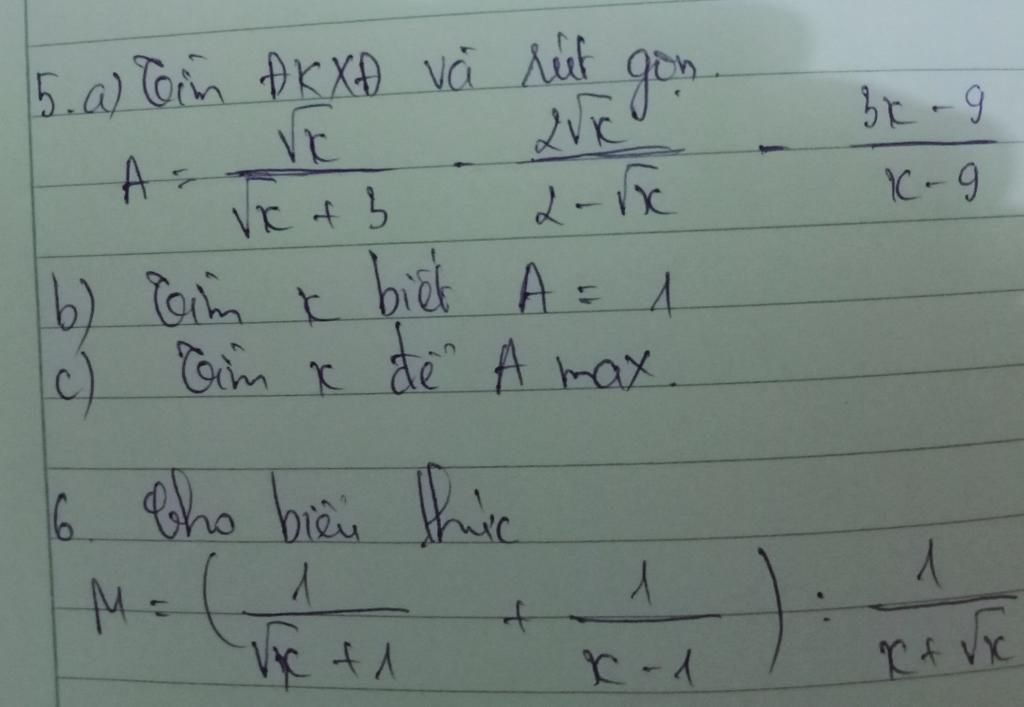 5.a) Tìm ĐKXĐ và rút gọn.
A = √x / (√x + 3) - 2√x / (2 - √x) - (3x - 9) / (x - 9)
b) Tìm x biết A = 1
c) Tìm x để A max.
6. Cho biểu thức
M = (1 / (√x + 1) + 1 / (x - 1)) : 1 / (x + √x)